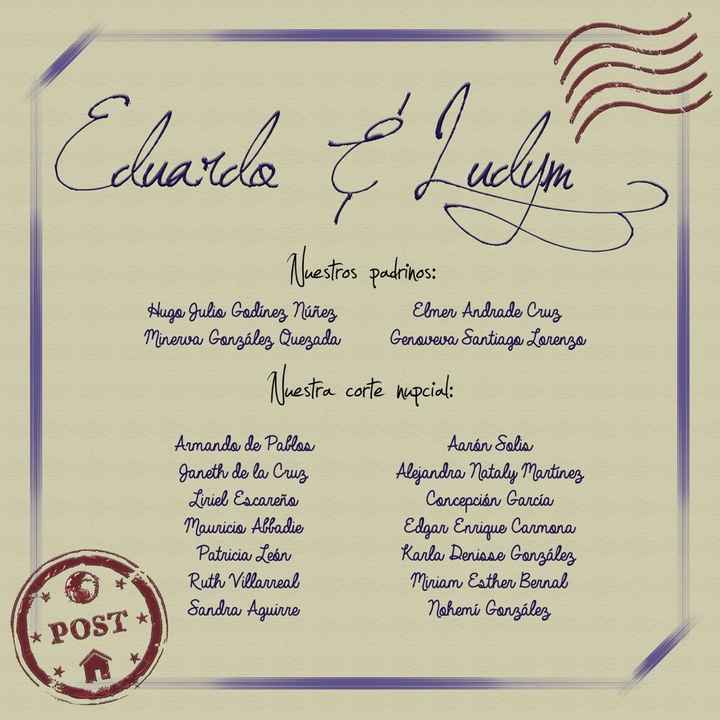 Eduardo & Ludym
Nuestros padrinos:
Hugo Julio Godínez Núñez
Minerva González Quezada
Elmer Andrade Cruz
Genoveva Santiago Lorenzo
Nuestra corte nupcial:
Armando de Pablos
Janeth de la Cruz
Liriel Escareño
Mauricio Abbadie
Patricia León
Ruth Villarreal
Sandra Aguirre
Aarón Solis
Alejandra Nataly Martínez
Concepción García
Edgar Enrique Carmona
Karla Denisse González
Miriam Esther Bernal
Nohemí González
POST